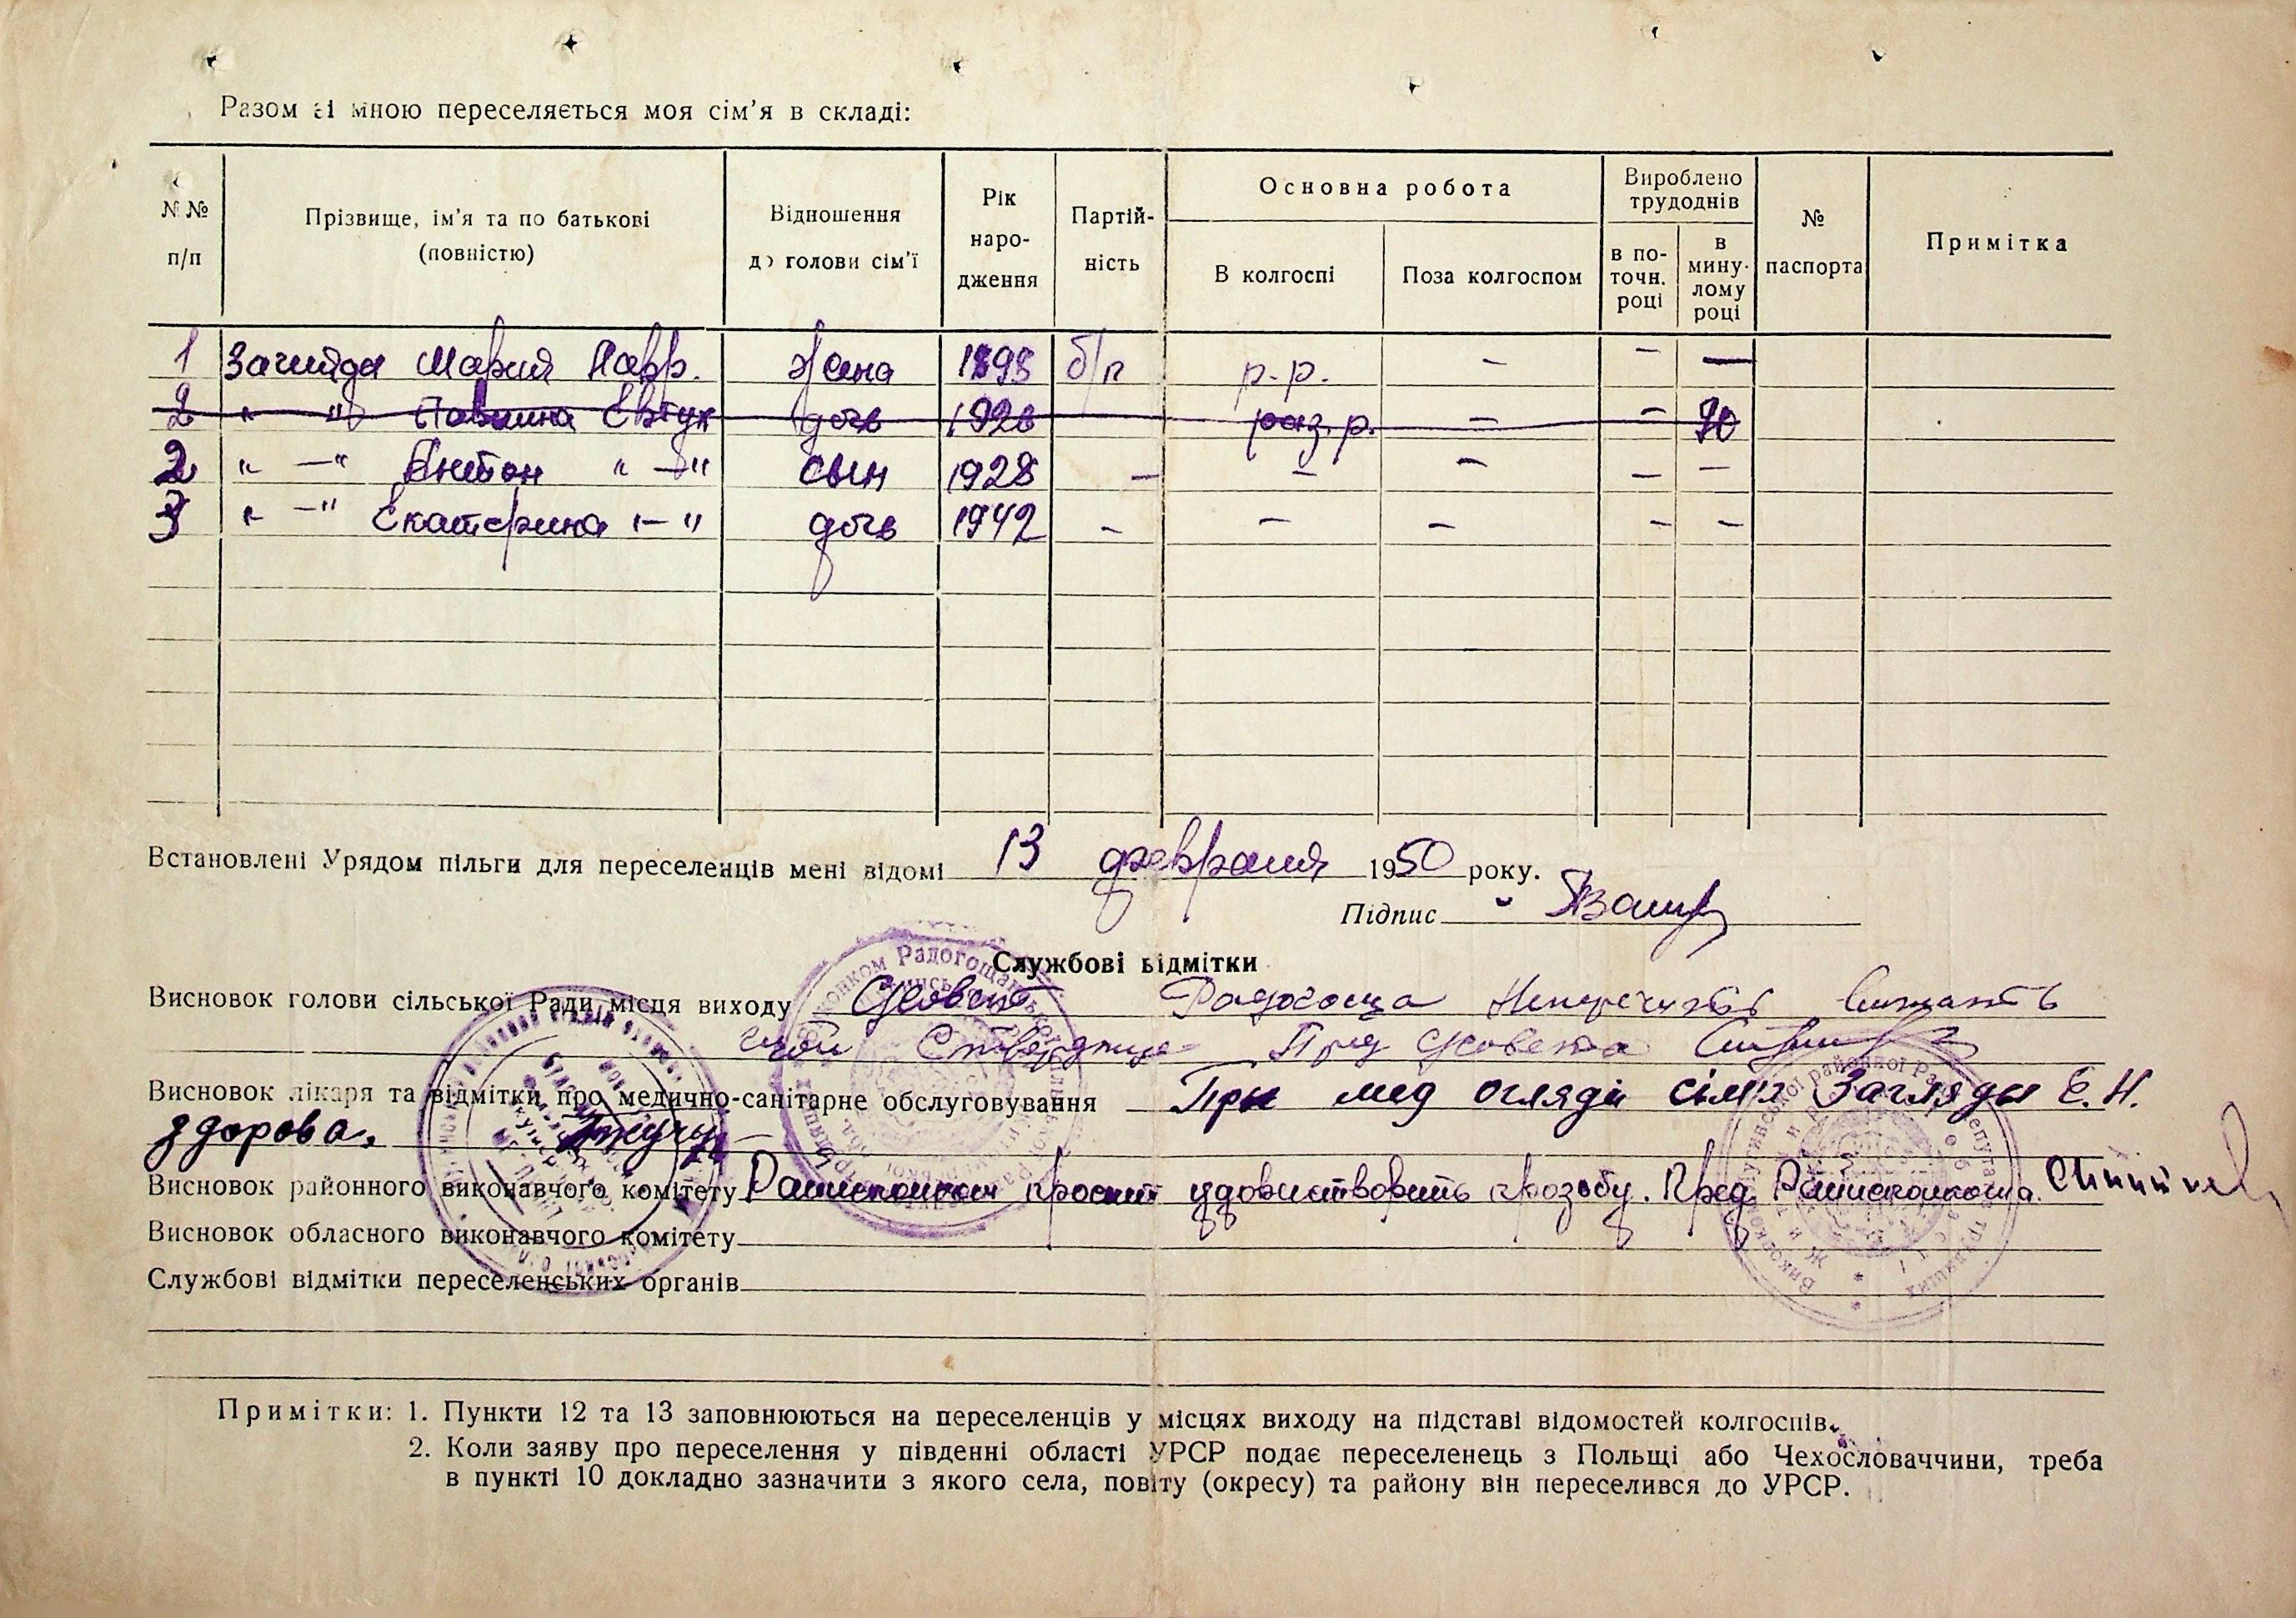 Разом зі мною переселяється моя сім'я в складі:
№№ п/п
Прізвище, ім'я та по батькові (повністю)
Відношення до голови сім'ї
Рік народження
Партійність
Основна робота
В колгоспі
Поза колгоспом
Вироблено трудоднів
в поточн. році
в минулому році
№ паспорта
Примітка
1 Загляда Мария Лавр. жена 1898 б/п р.р. — — —
2 " — " Евтух дочь 1926 раз.р. — — 70
2 " — " Антон " — " сын 1928 — — — — —
3 " — " Екатерина " — " дочь 1942 — — — — —
Встановлені Урядом пільги для переселенців мені відомі 13 февраля 1950 року.
Підпис
Службові відмітки
Висновок голови сільської Ради місця виходу Радогоща
Пред
Висновок лікаря та відмітки про медично-санітарне обслуговування При мед огляді сім'я Загляды Є. Н.
здорова.
Висновок районного виконавчого комітету Райисполком просит прозьбу. Пред. Райисполкома
Висновок обласного виконавчого комітету
Службові відмітки переселенських органів
Примітки: 1. Пункти 12 та 13 заповнюються на переселенців у місцях виходу на підставі відомостей колгоспів.
2. Коли заяву про переселення у південні області УРСР подає переселенець з Польщі або Чехословаччини, треба
в пункті 10 докладно зазначити з якого села, повіту (окресу) та району він переселився до УРСР.